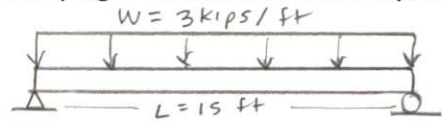 W = 3 kips/ft
L = 15 ft